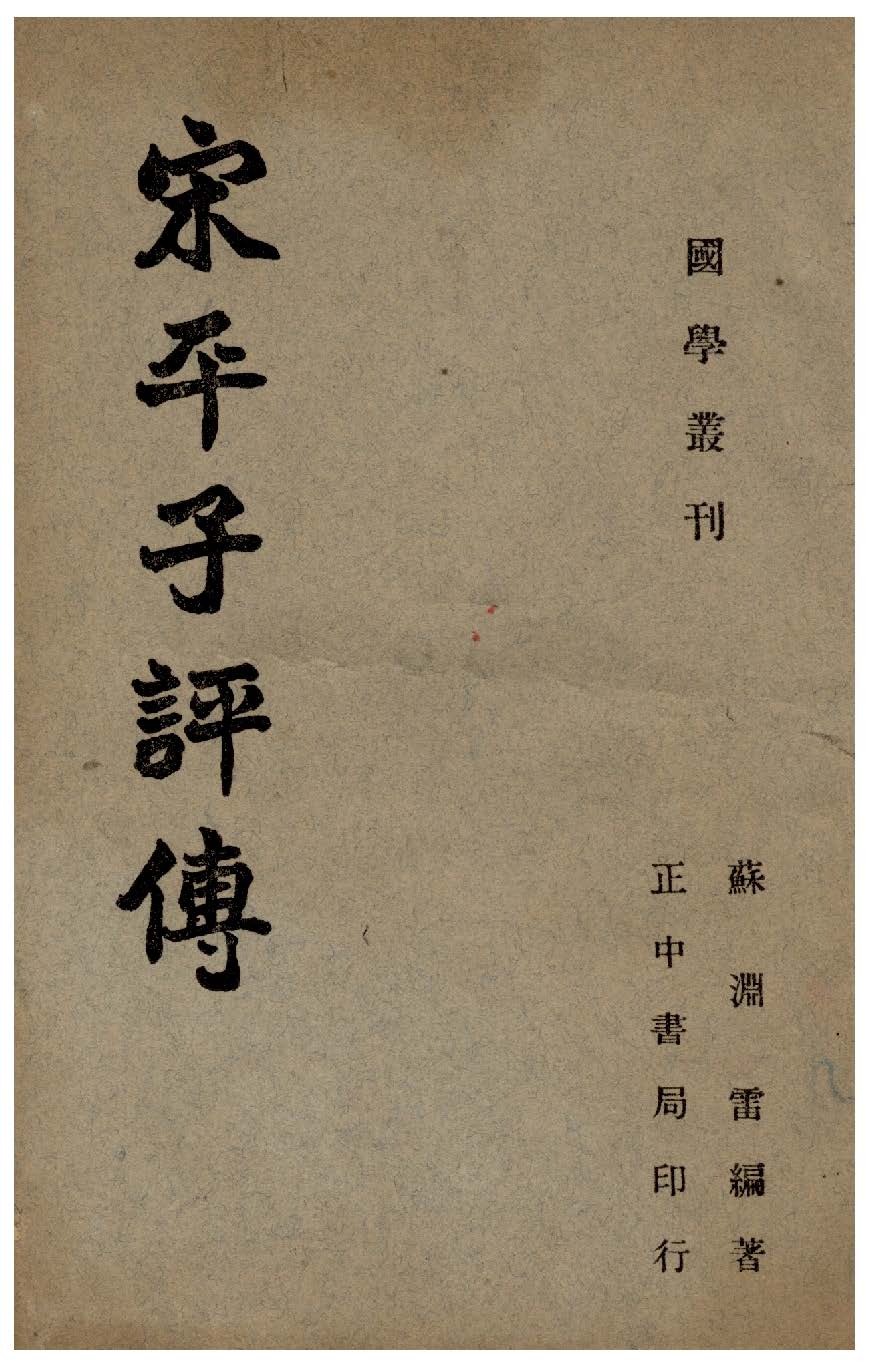 國學叢刊
蘇淵雷編著
正中書局印行
宋平子評傳